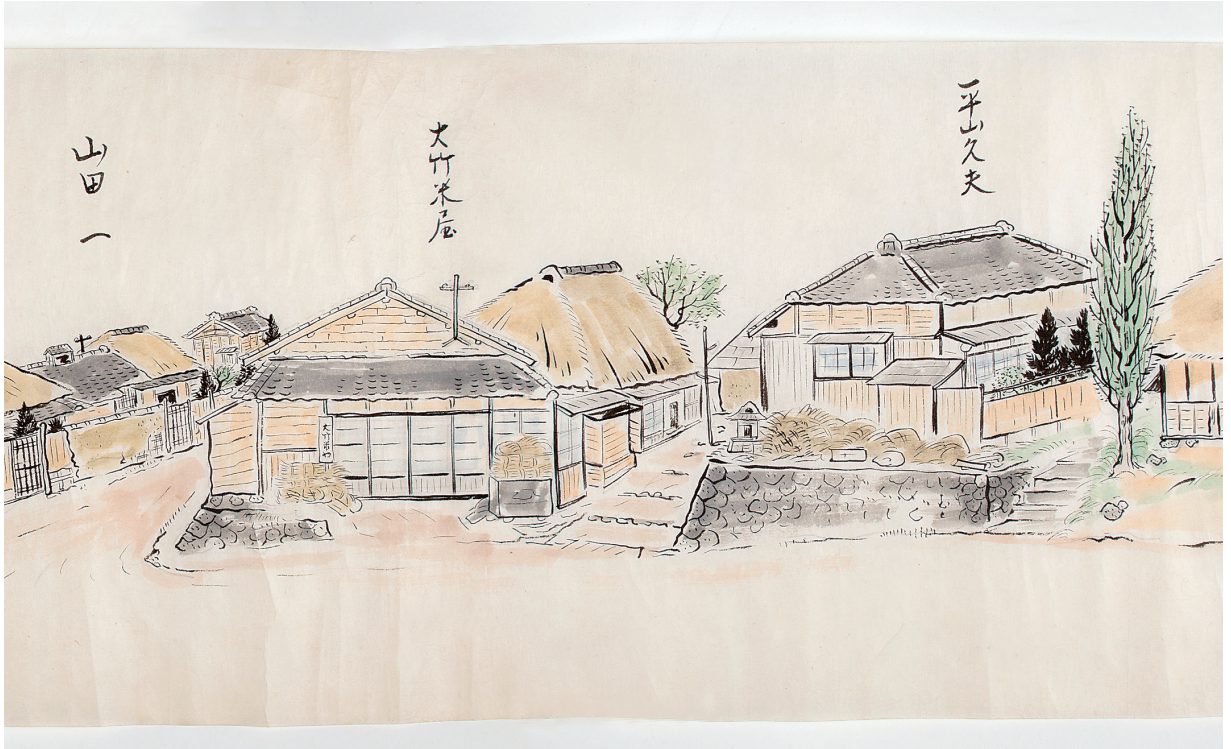 平山久夫
大竹米屋
大竹米や
山田一